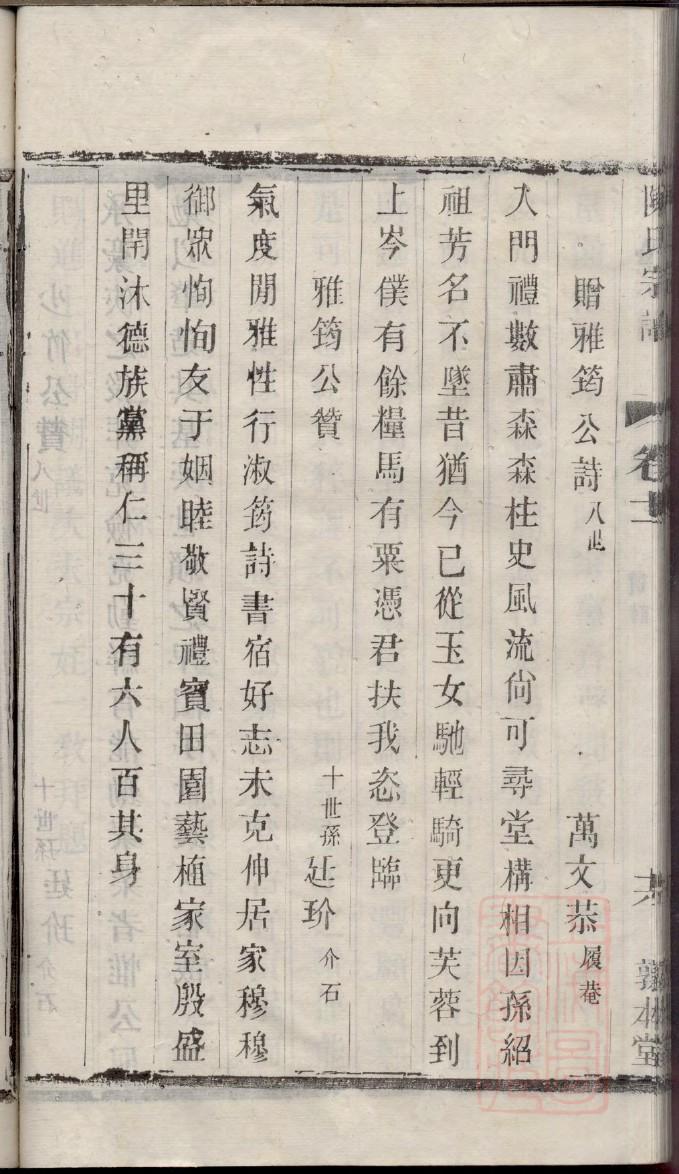 陳氏宗譜 卷十二 敦本堂
贈雅筠公詩 八世 萬文恭 履菴
入門禮數肅森森柱史風流尙可尋堂構相因孫紹
祖芳名不墜昔猶今已從玉女馳輕騎更向芙蓉到
上岑僕有餘糧馬有粟憑君扶我恣登臨
雅筠公贊 十世孫 廷玠 介石
氣度閒雅性行淑筠詩書宿好志未克伸居家穆穆
御眾恂恂友于姻睦敬賢禮賓田園藝植家室殷盛
里閈沐德族黨稱仁三十有六人百其身